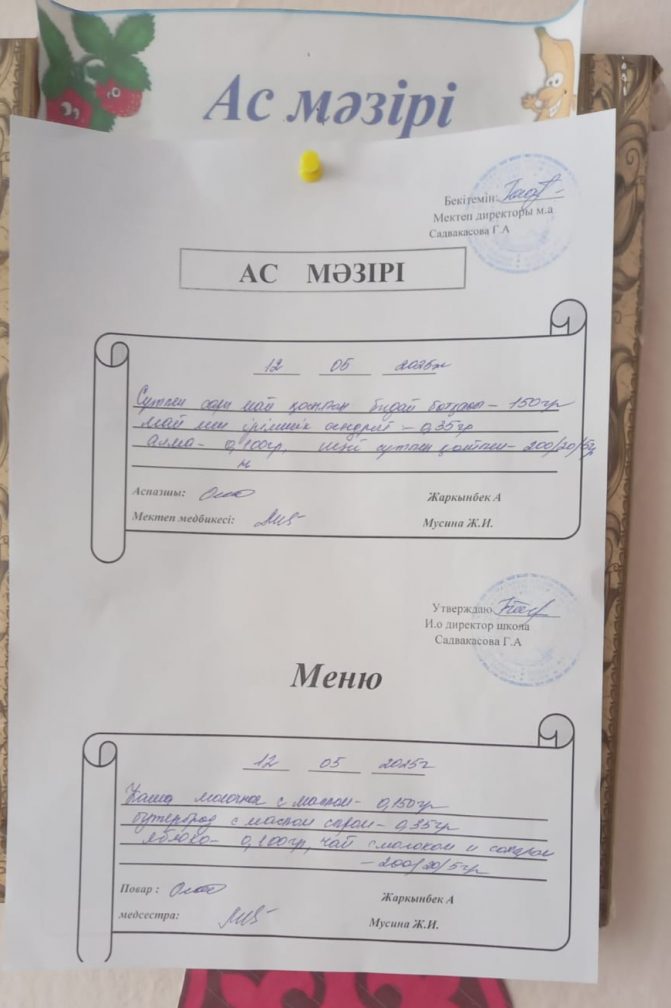 Ас мәзірі
Бекітемін:
Мектеп директоры м.а
Садвакасова Г.А
АС МӘЗІРІ
12 05 2025ж
Сүтпен сары май қосылған бидай ботқасы - 150гр
Май мен ірімшік - 0,35гр
алма - 0,100гр, шәй сүтпен қантпен - 200/20/5гр
Аспазшы: Жаркынбек А
Мектеп медбикесі: Мусина Ж.И.
Утверждаю
И.о директор школа
Садвакасова Г.А
Меню
12 05 2025г
Каша молочная с маслом - 0,150гр
бутерброд с маслом сыром - 0,35гр
яблоко - 0,100гр, чай с молоком и сахаром
- 200/20/5гр
Повар : Жаркынбек А
медсестра: Мусина Ж.И.